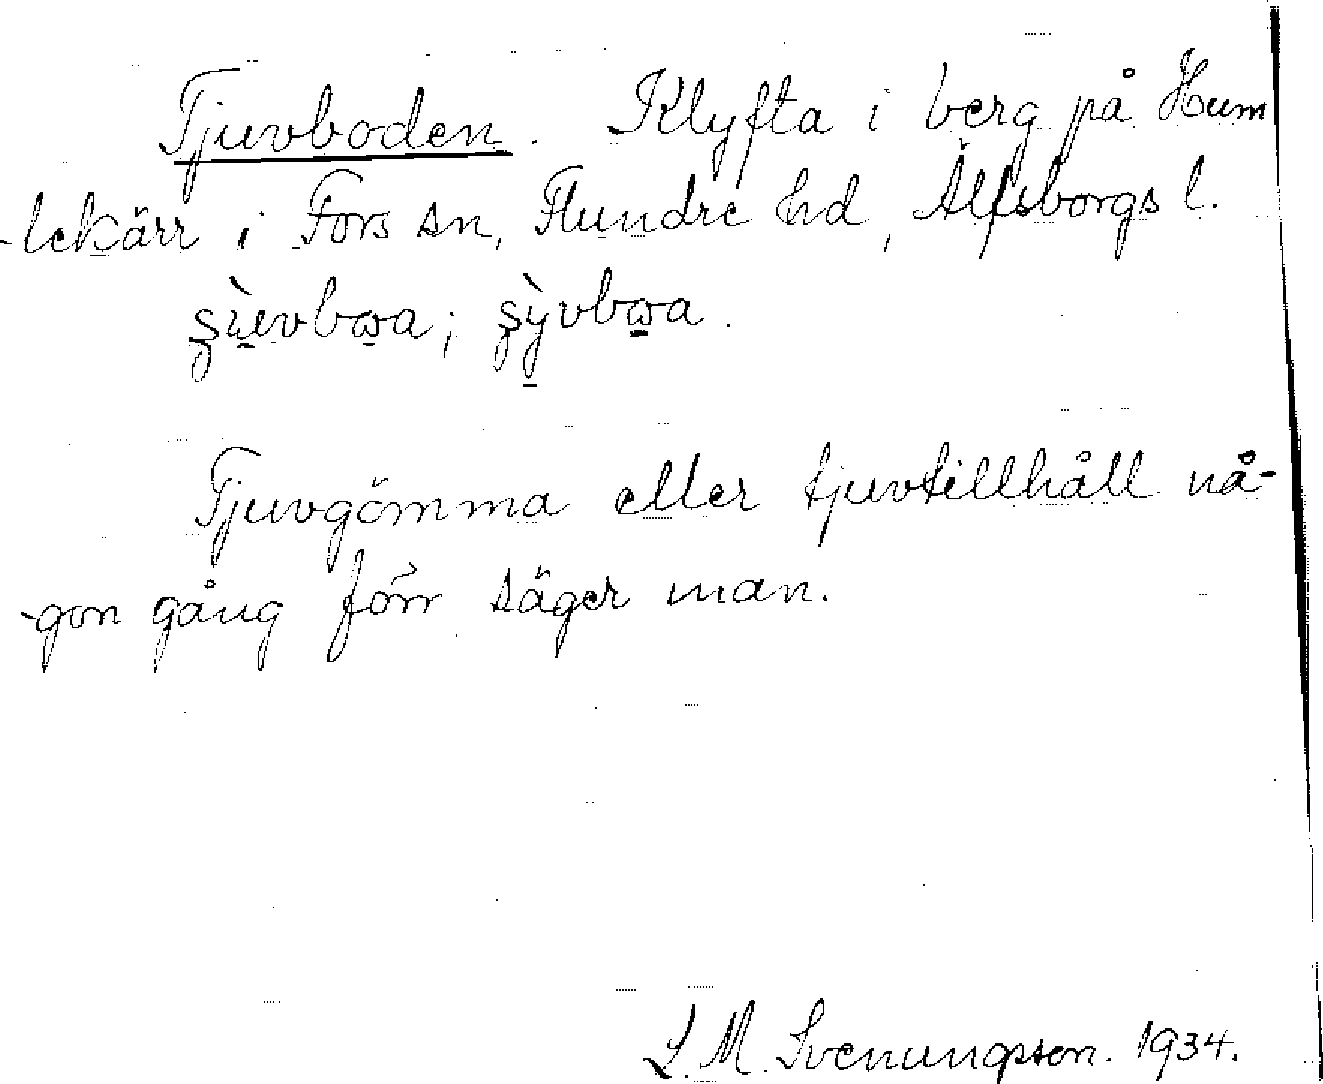 Tjuvboden. Klyfta i berg på Hum
-lekärr i Fors sn, Flundre hd, Älfsborgs l.
Tjuvgömma eller tjuvtillhåll nå-
-gon gång förr säger man.
L. M. Svenungsson. 1934.